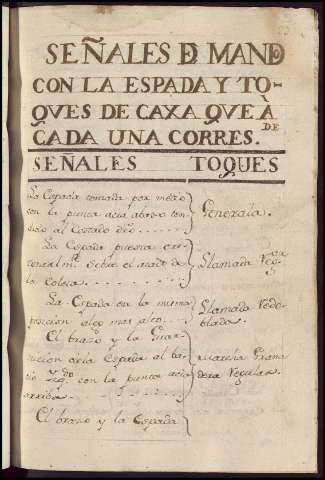 SEÑALES D MAND
CON LA ESPADA Y TO-
QVES DE CAXA QVE À
CADA UNA CORRES. DE
SEÑALES TOQUES
La Espada tomada por medio
con la punta acia abaxo ten
dido al Costado dro. . . . . . .
Generala.
La Espada puesta
sobre el de
la Coleta . . . . . . . .
Llamada Reg.ar
La Espada en la misma
posicion algo mas alto . . .
Llamada Redo
blada.
El brazo y la Guar
nicion acia Espada al
Izq.do con la punta acia
arriba . . . . . . . . .
Marcha Grana
dera Regular.
El brazo y la Espada